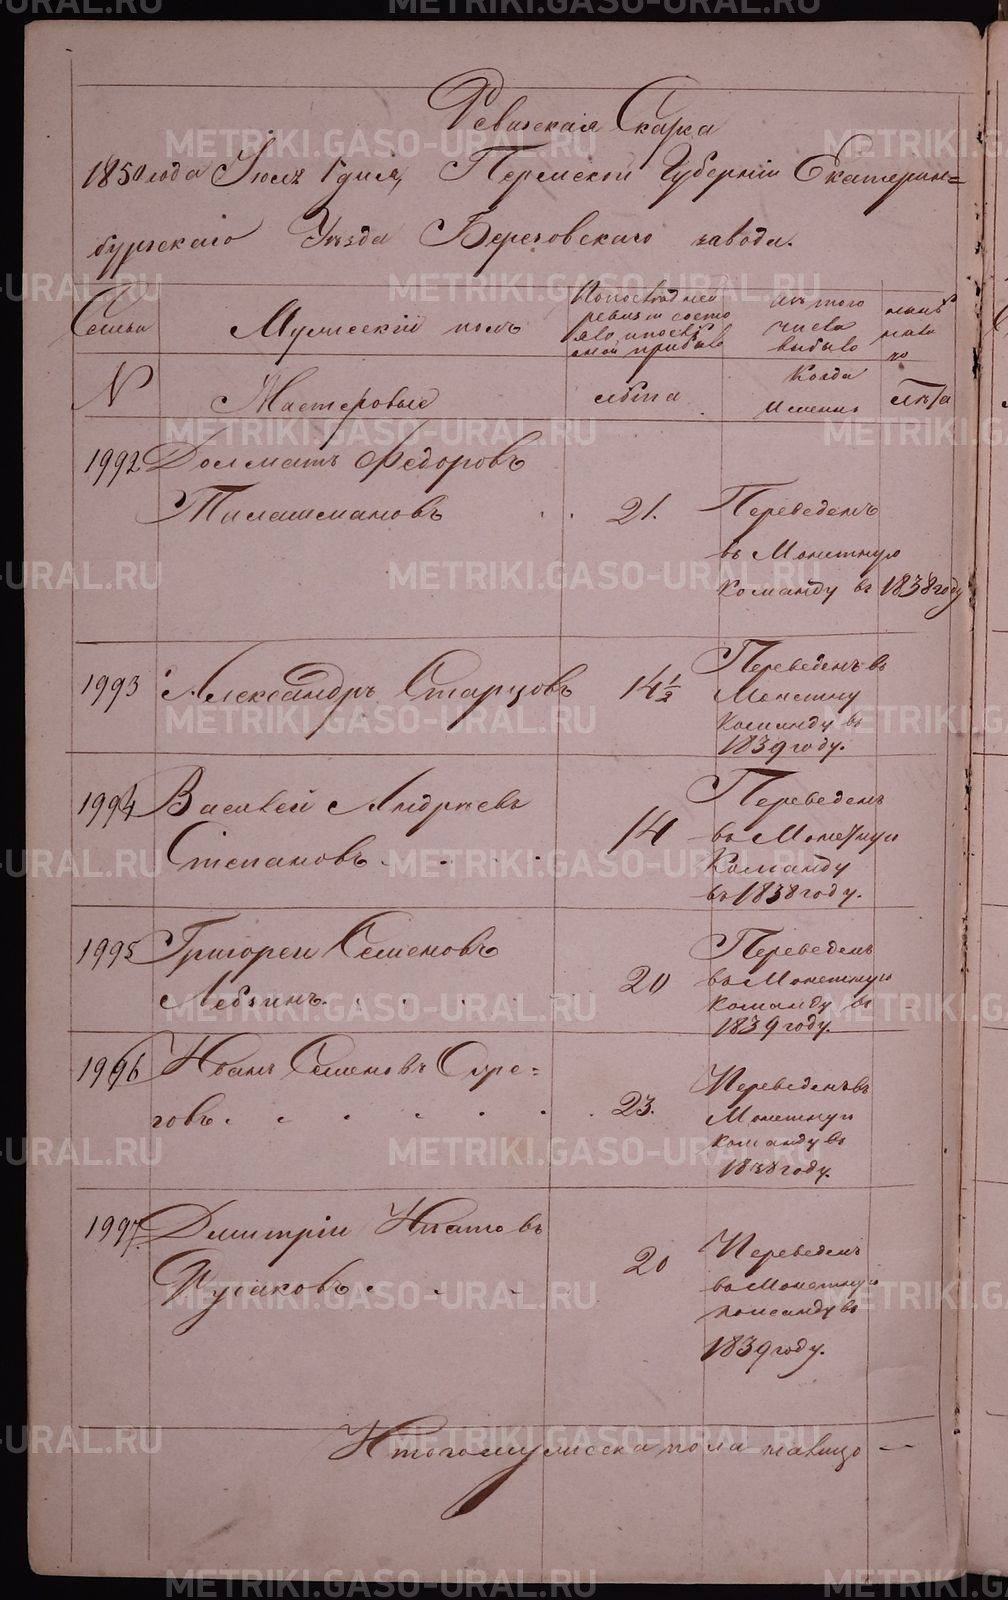 Ревизская Скаска
1850 года Іюля 1 дня, Пермской Губерніи Екатерин=
бургскаго Уѣзда Березовскаго завода.
Семьи Мужескій полъ По последней ревизіи состояло и после оной прибыло Изъ того числа выбыло нынѣ на лицо
№ Мастеровые лѣта Когда именно лѣта
1992 Долматъ Федоровъ
Талашмановъ . . 21. Переведенъ
въ Монетную
команду въ 1838 году
1993 Александръ Старцовъ 14 ½ Переведенъ въ
Монетну
команду въ
1839 году.
1994 Василей Андреевъ
Степановъ . . . . 14 Переведенъ
въ Монетную
Команду
въ 1838 году.
1995 Григорей Семеновъ
Лебзинъ . . . . . 20 Переведенъ
въ Монетную
команду въ
1839 году.
1996 Иванъ Семеновъ =
говъ . . . . . . . 23. Переведенъ въ
Монетную
команду въ
1838 году.
1997 Дмитрій Ипатовъ
. . . . 20 Переведенъ
въ Монетную
команду въ
1839 году.
Итого мужеска пола налицо —
METRIKI.GASO-URAL.RU